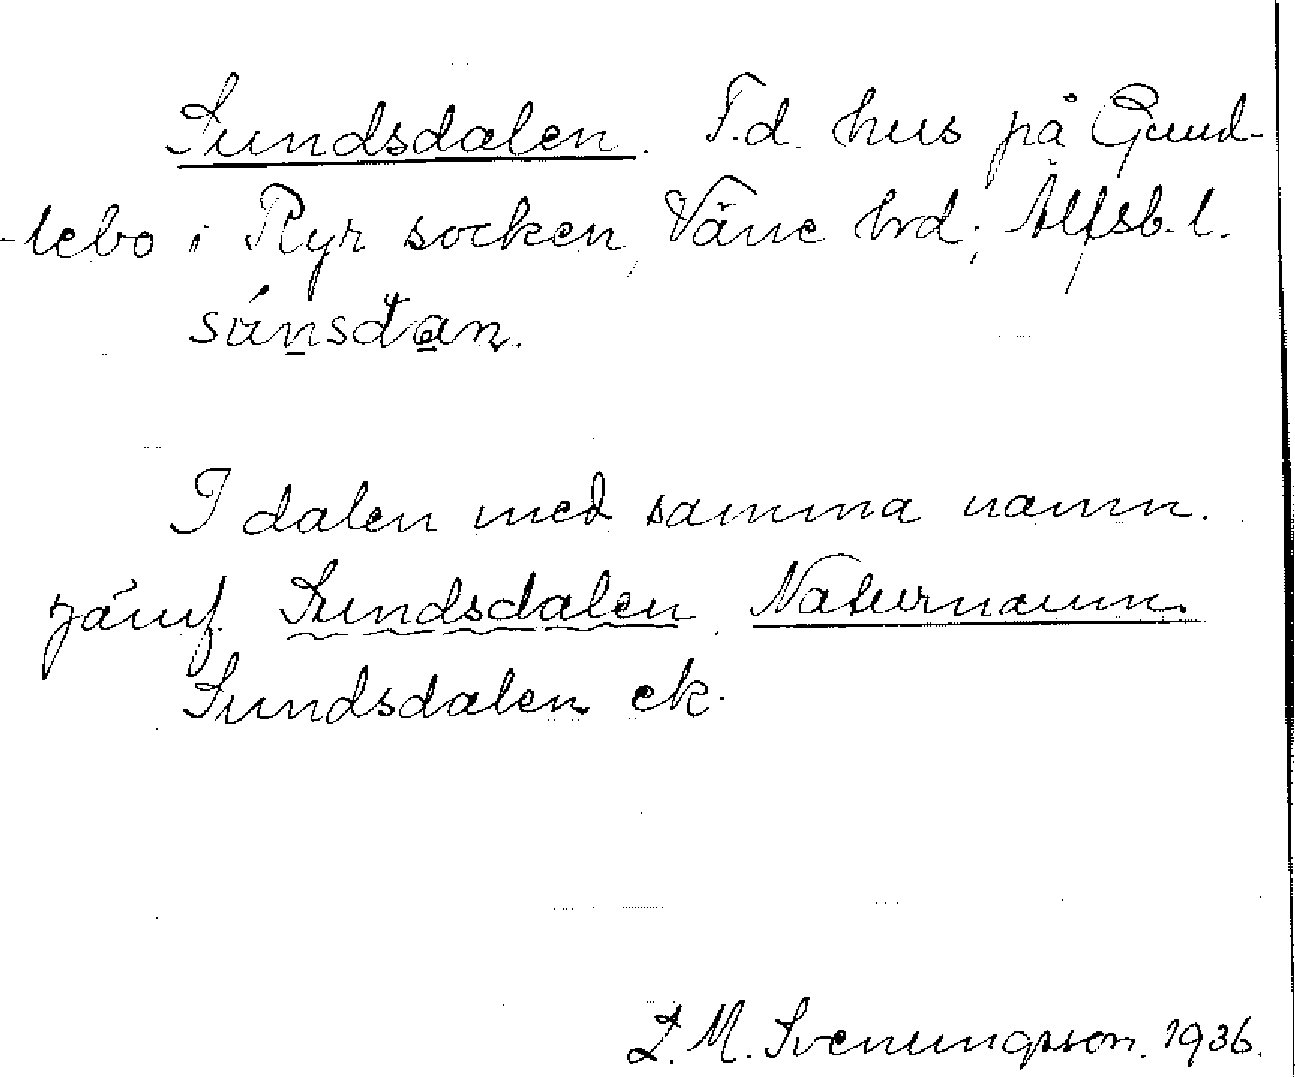 Sundsdalen. F.d. hus på Gund-
-lebo i Ryr socken, Väne hrd; Älfsb. l.
I dalen med samma namn.
Jämf. Sundsdalen Naturnamn.
Sundsdalen ek.
L. M. Svenungsson. 1936.